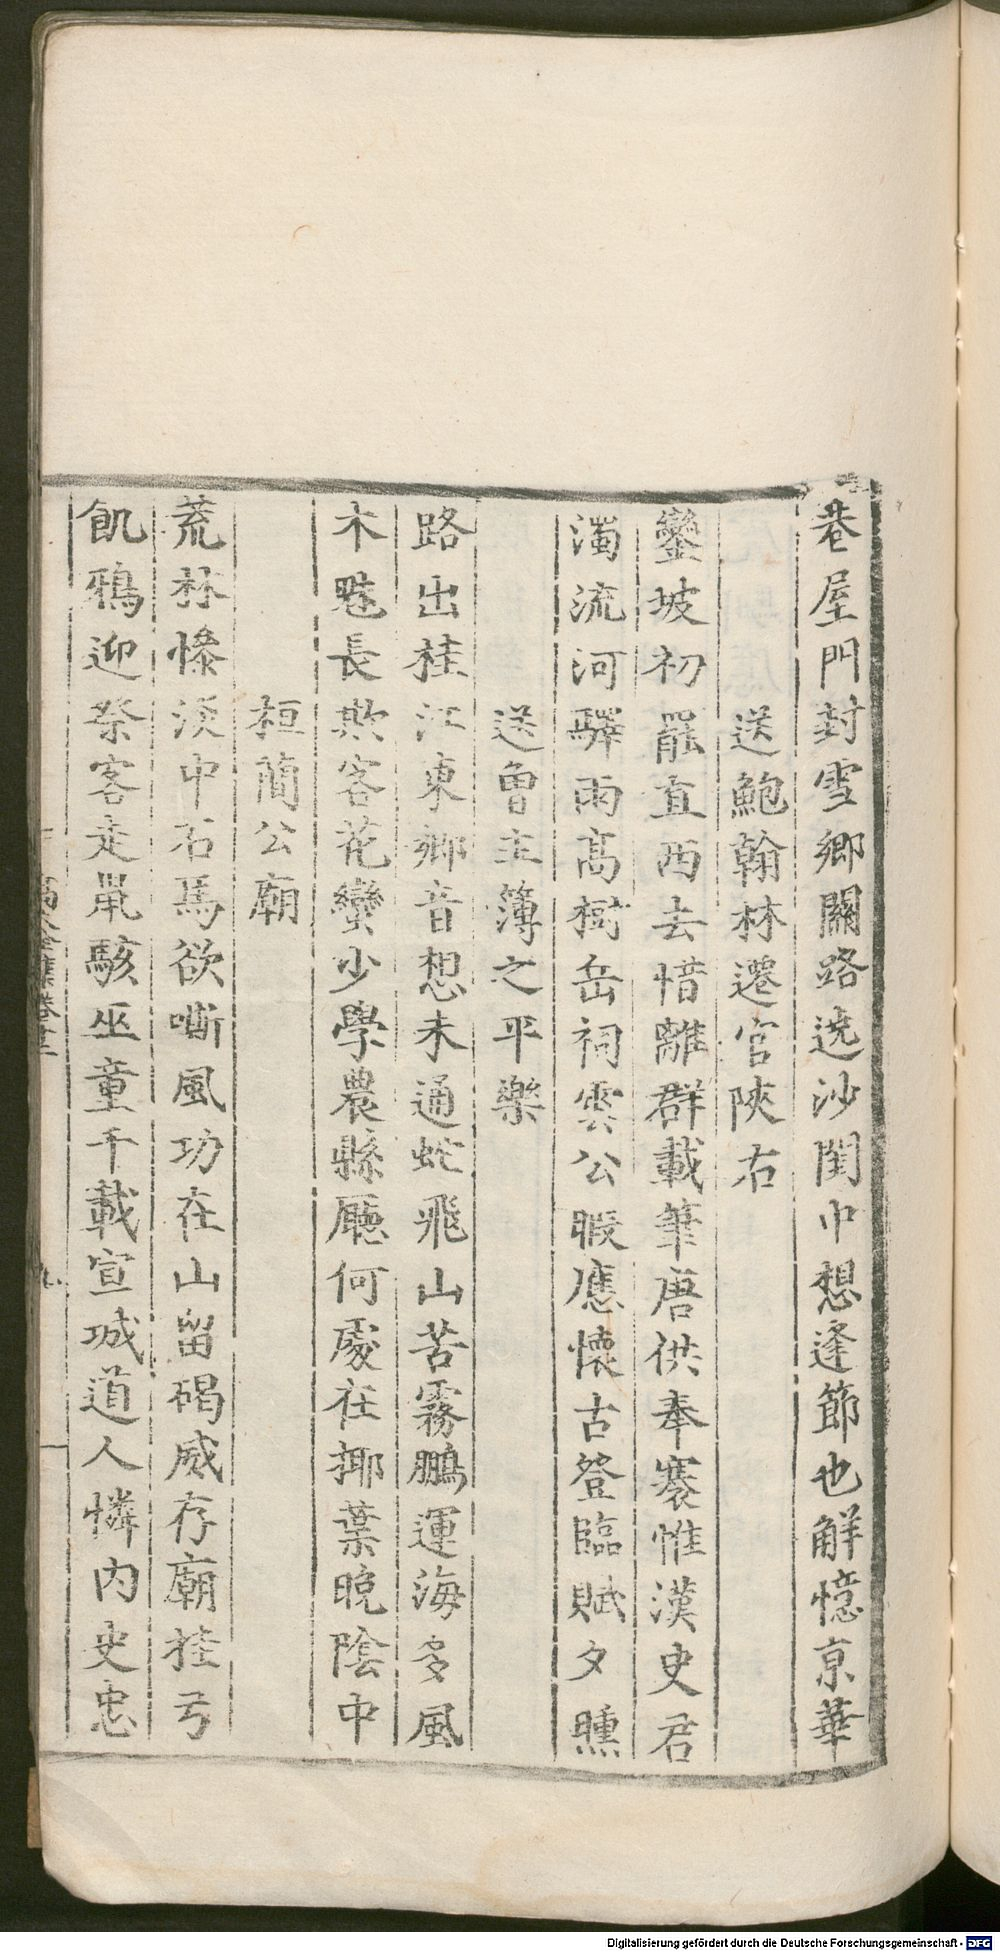 巷屋門封雪鄉關路遶沙閨中想逢節也觧憶京華
送鮑翰林遷官陜右
鑾坡初罷直西去惜離群載筆唐供奉褰惟漢史君
濁流河驛雨髙樹岳祠雲公暇應懷古登臨賦夕曛
送魯主簿之平樂
路出桂江東鄉音想未通蛇飛山苦霧鵬運海多風
木魅長欺客花蠻少學農縣廳何處在揶葉晚陰中
桓簡公廟
荒林慘淡中石馬欲嘶風功在山留碣威存廟挂弓
飢鴉迎祭客走鼠駭巫童千載宣城道人憐内史忠
九
Digitalisierung gefördert durch die Deutsche Forschungsgemeinschaft - DFG